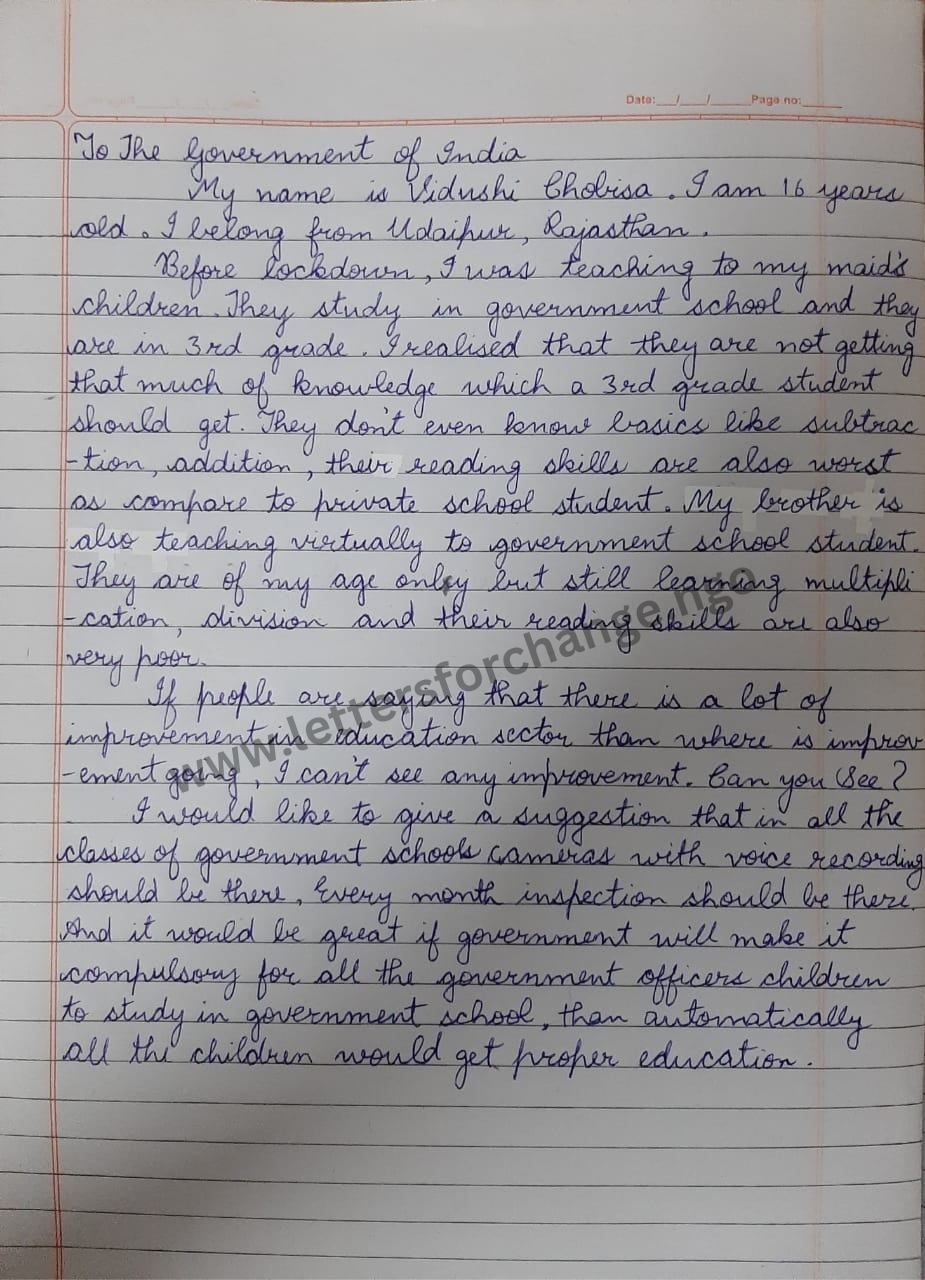 Date:___/___/_____Page no:_____
To The Government of India
My name is Vidushi Chobisa. I am 16 years
old. I belong from Udaipur, Rajasthan.
Before lockdown, I was teaching to my maid's
children. They study in government school and they
are in 3rd grade. I realised that they are not getting
that much of knowledge which a 3rd grade student
should get. They don't even know basics like subtrac
-tion, addition, their reading skills are also worst
as compare to private school student. My brother is
also teaching virtually to government school student.
They are of my age only but still learning multipli
-cation, division and their reading skills are also
very poor.
If people are saying that there is a lot of
improvement in education sector than where is improv
-ement going, I can't see any improvement. Can you see?
I would like to give a suggestion that in all the
classes of government schools cameras with voice recording
should be there, Every month inspection should be there.
And it would be great if government will make it
compulsory for all the government officers children
to study in government school, than automatically
all the children would get proper education.
www.lettersforchange.ngo